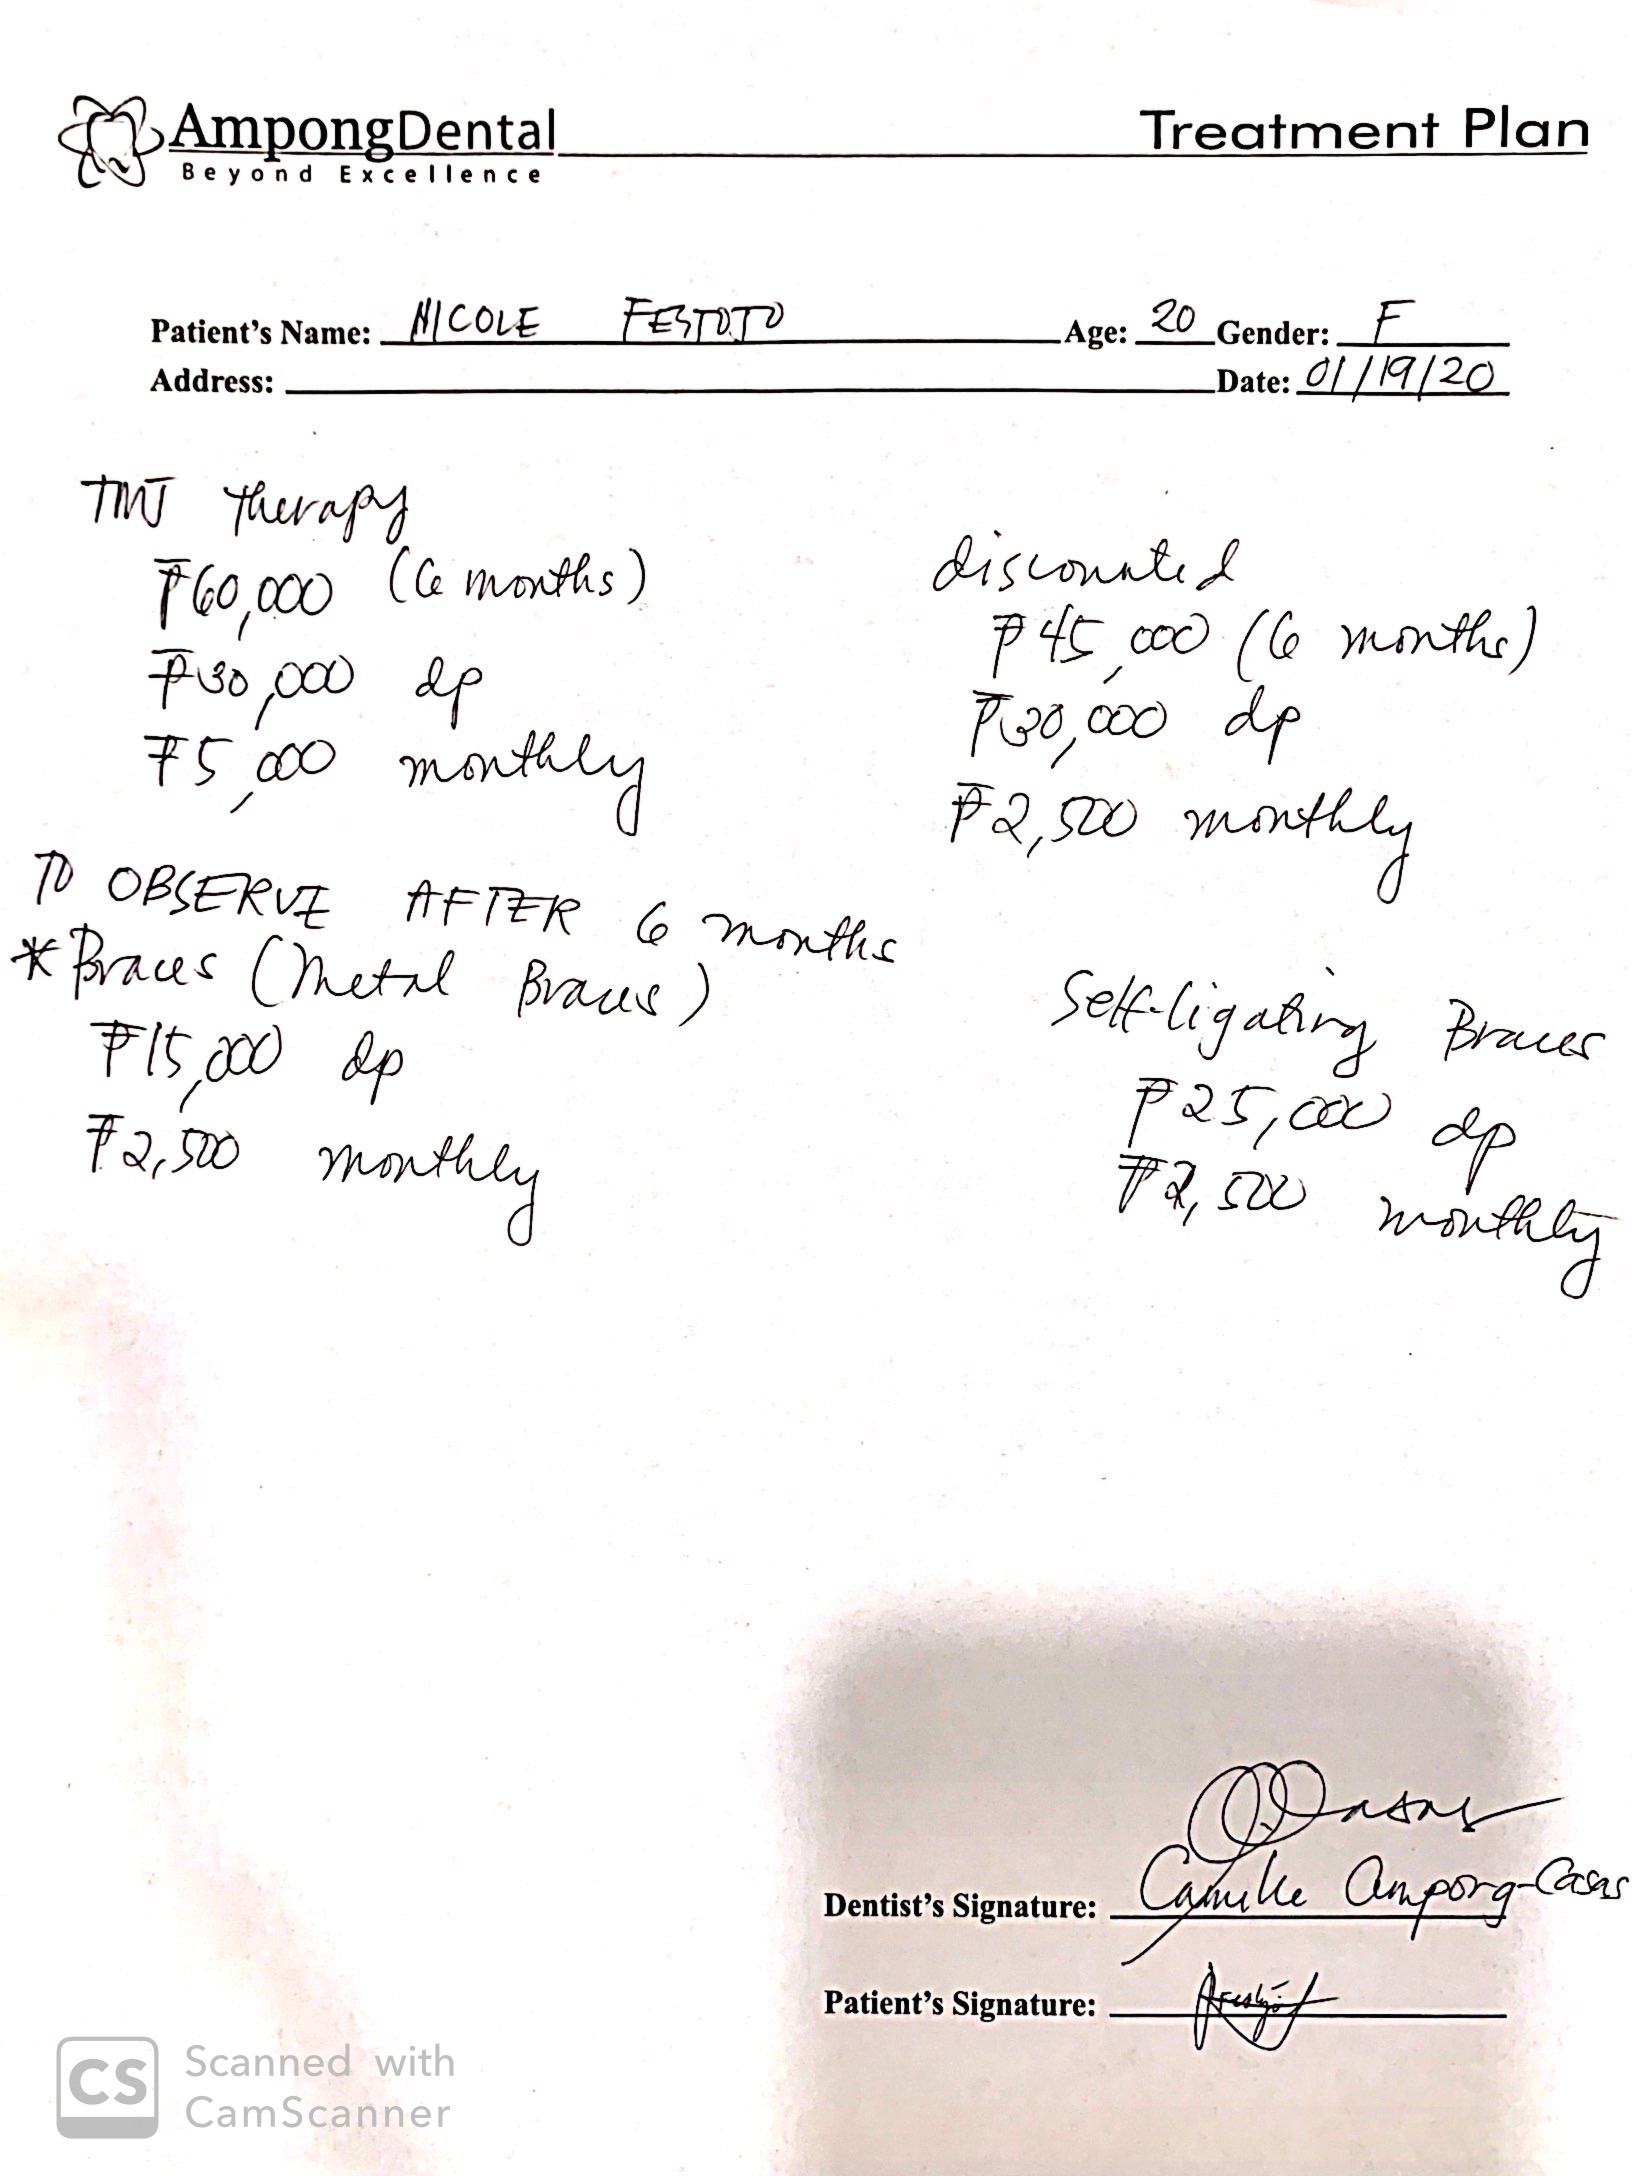 AmpongDental
Beyond Excellence
Treatment Plan
Patient's Name: NICOLE
Age: 20 Gender: F
Address:
Date: 01/19/20
TMJ therapy
₱60,000 (6 months)
₱30,000 dp
₱5,000 monthly
discounted
₱45,000 (6 months)
₱30,000 dp
₱2,500 monthly
TO OBSERVE AFTER 6 months
*Braces (Metal Braces)
₱15,000 dp
₱2,500 monthly
Self-ligating Braces
₱25,000 dp
₱2,500 monthly
Dentist's Signature: Camille Ampong-Casas
Patient's Signature:
CS Scanned with
CamScanner